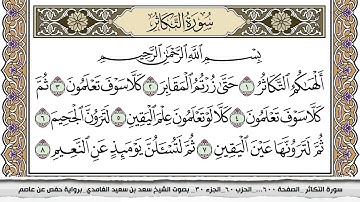 سُورَةُ التَّكَاثُرِ
بِسْمِ اللَّهِ الرَّحْمَٰنِ الرَّحِيمِ
أَلْهَاكُمُ التَّكَاثُرُ ١ حَتَّىٰ زُرْتُمُ الْمَقَابِرَ ٢ كَلَّا سَوْفَ تَعْلَمُونَ ٣ ثُمَّ
كَلَّا سَوْفَ تَعْلَمُونَ ٤ كَلَّا لَوْ تَعْلَمُونَ عِلْمَ الْيَقِينِ ٥ لَتَرَوُنَّ الْجَحِيمَ ٦
ثُمَّ لَتَرَوُنَّهَا عَيْنَ الْيَقِينِ ٧ ثُمَّ لَتُسْأَلُنَّ يَوْمَئِذٍ عَنِ النَّعِيمِ ٨
سورة التكاثر _الصفحة ٦٠٠... الحزب ٦٠_الجزء ٣٠_ بصوت الشيخ سعد بن سعيد الغامدي _برواية حفص عن عاصم